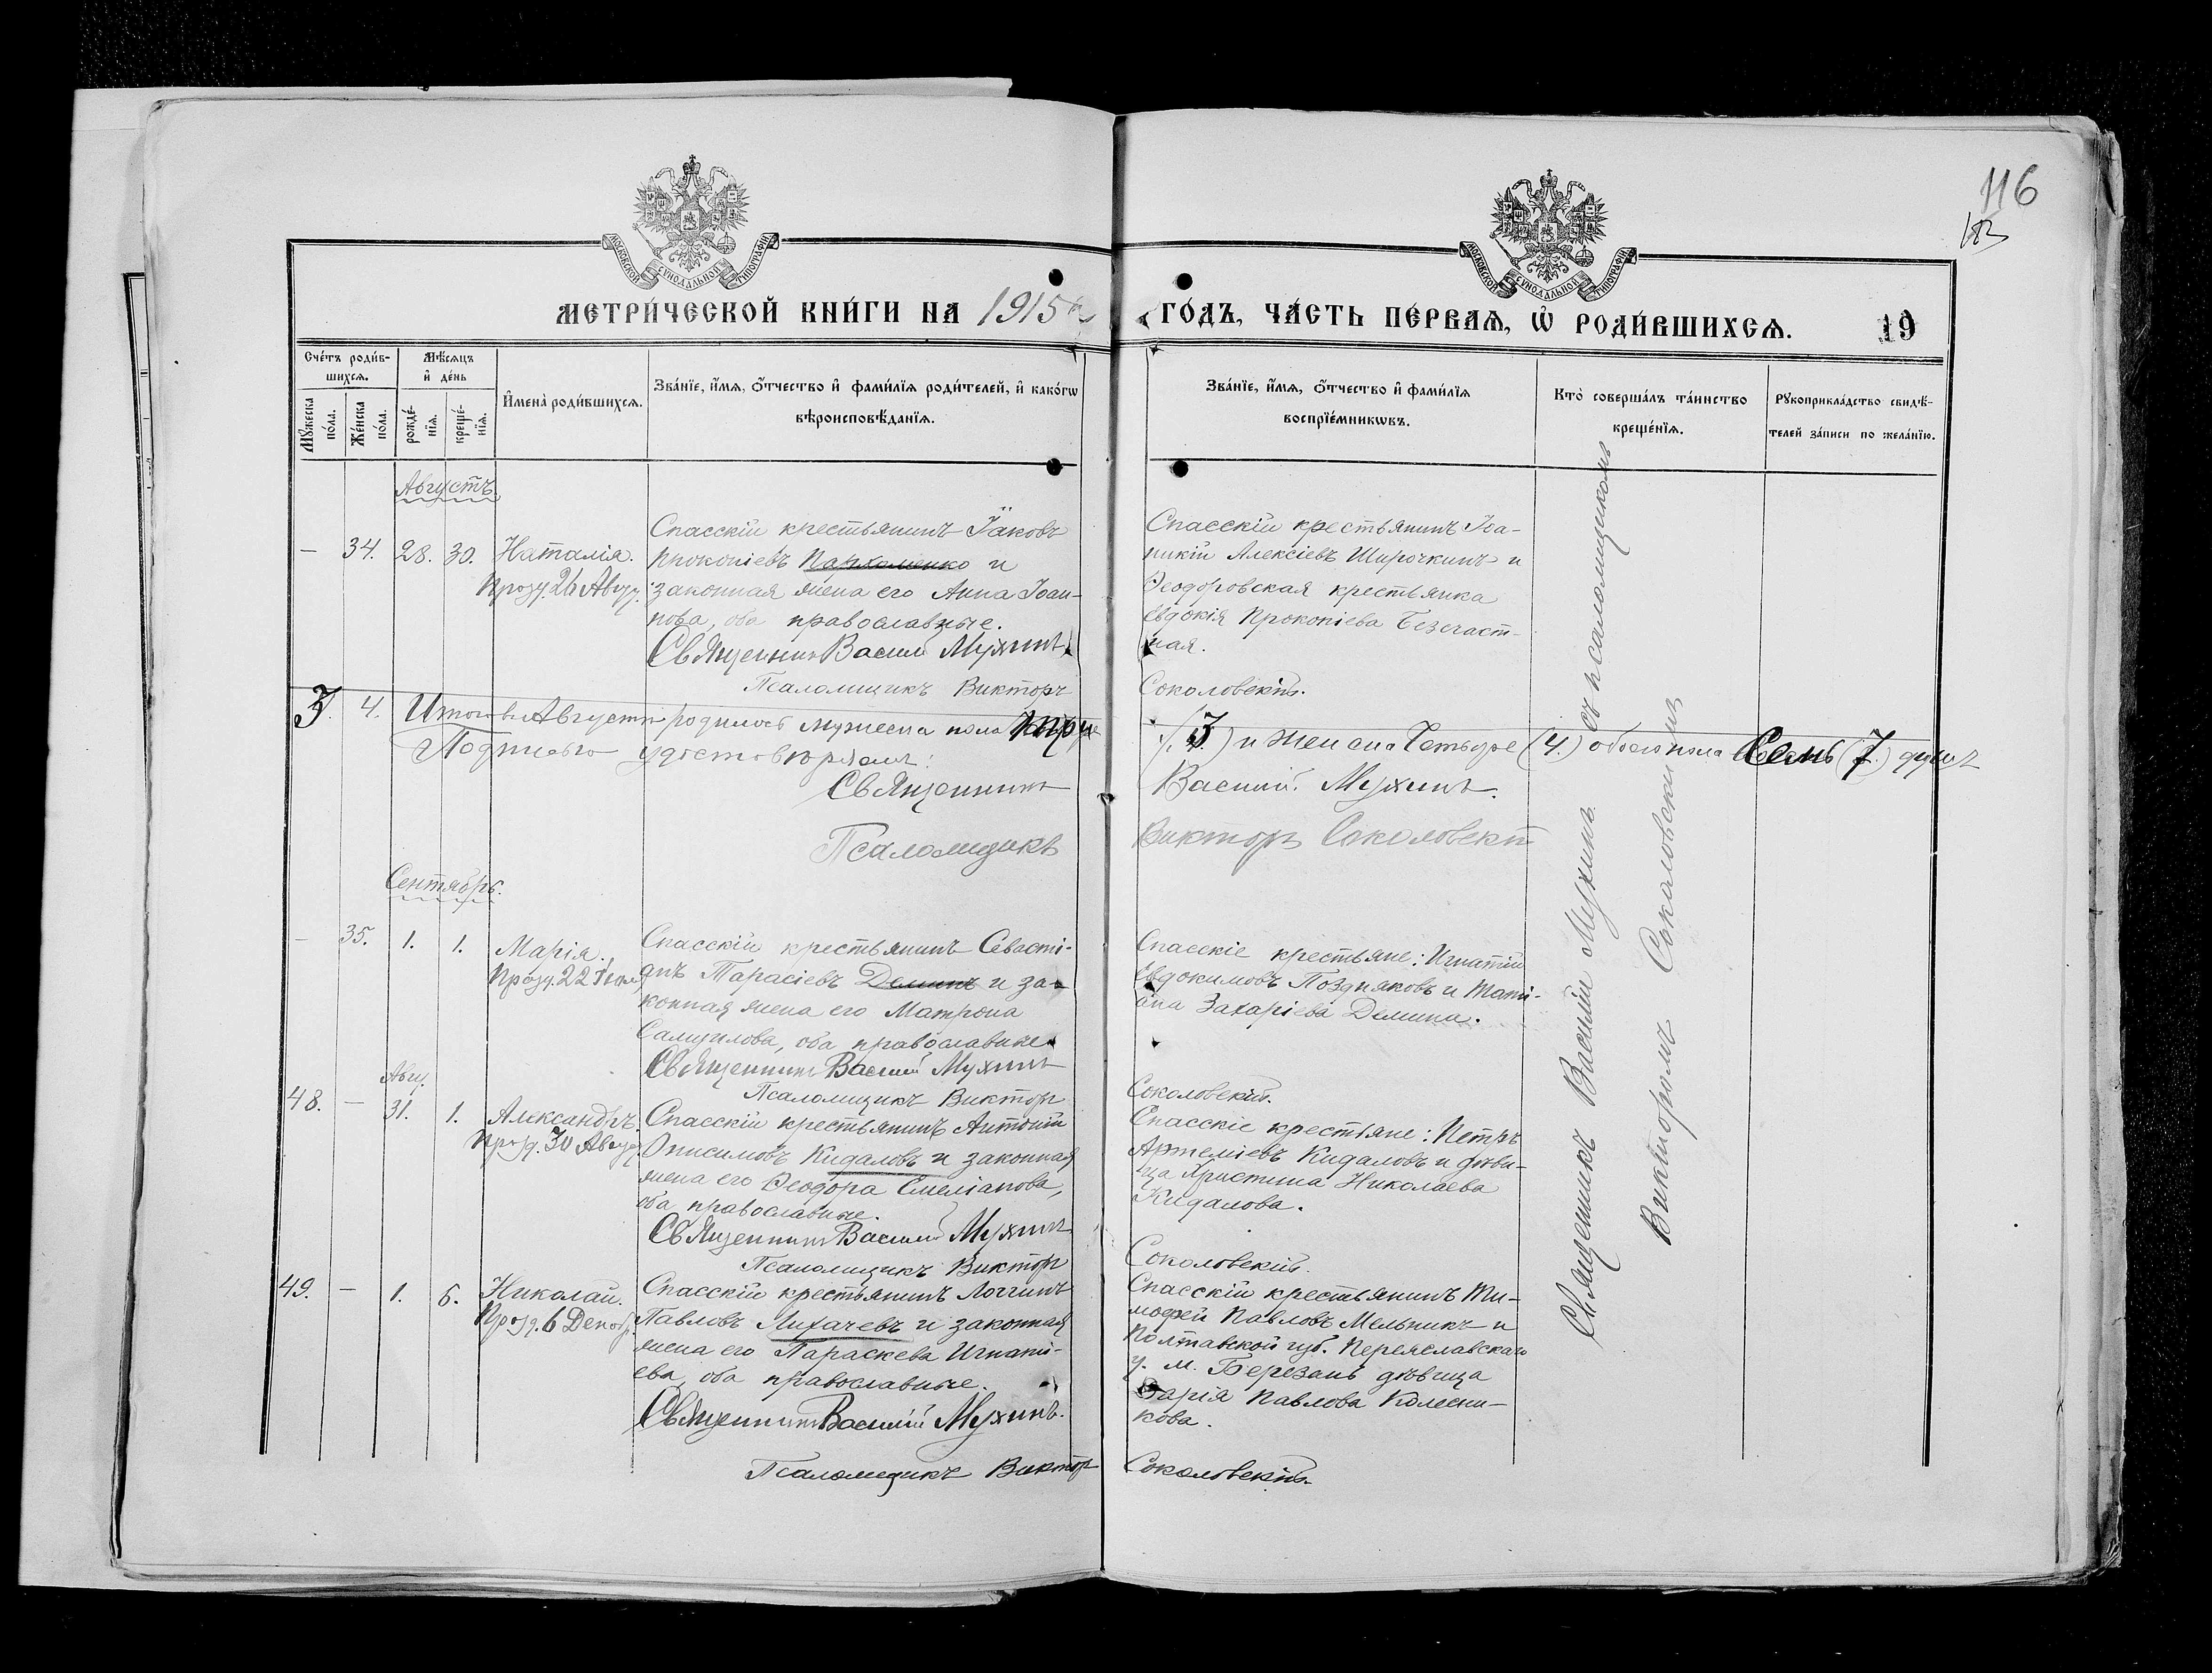 116
МОСКОВСКОЙ СѴНОДАЛЬНОЙ ТИПОГРАФІИ
МОСКОВСКОЙ СѴНОДАЛЬНОЙ ТИПОГРАФІИ
МЕТРИ́ЧЕСКОЙ КНИ́ГИ НА 1915
ГО́ДЪ, ЧА́СТЬ ПЕ́РВАѦ, Ѡ РОДИ́ВШИХСѦ.
19
Сче́тъ роди́в-
шихсѧ.
Мѣ́сѧцъ
и де́нь
Мꙋ́жеска по́ла.
Же́нска по́ла.
рожде́-
нїѧ.
креще́-
нїѧ.
И҆мена̀ роди́вшихсѧ.
Зва́нїе, и҆́мѧ, ѻ҆́тчество и҆ фами́лїѧ роди́телей, и҆ како́гѡ
вѣроисповѣ́данїѧ.
Зва́нїе, и҆́мѧ, ѻ҆́тчество и҆ фами́лїѧ
воспрїе́мникѡвъ.
Кто̀ соверша́лъ та́инство
креще́нїѧ.
Рꙋкоприкла́дство свидѣ́-
телей за́писи по жела́нїю.
Августъ
— 34. 28. 30. Наталія.
Празд. 26 Авгу.
Спасскій крестьянинъ Іаковъ
Прокопіевъ Пархоменко и
законная жена его Анна Іоан-
нова, оба православные.
Священникъ Василій Мухинъ
Псаломщикъ Викторъ
Спасскій крестьянинъ Іоа-
никій Алексіевъ Широчкинъ и
Ѳеодоровская крестьянка
Евдокія Прокопіева Безсчаст-
ная.
Соколовскій.
3. 4. Итого въ Августѣ родилось мужеска пола три
(3) и женска Четыре (4.) обоего пола Семь (7.) душъ
Подписью удостовѣряемъ:
Священникъ
Василій Мухинъ.
Псаломщикъ
Викторъ Соколовскій
Сентябрь.
— 35. 1. 1. Марія.
Празд. 22 Іюля
Спасскій крестьянинъ Севасті-
анъ Тарасіевъ Деминъ и за-
конная жена его Матрона
Самуилова, оба православные
Священникъ Василій Мухинъ
Псаломщикъ Викторъ
Спасскіе крестьяне: Игнатій
Евдокимовъ Поздняковъ и Таті-
ана Захаріева Демина.
Соколовскій.
Авгу.
48. — 31. 1. Александръ.
Празд. 30 Авгу.
Спасскій крестьянинъ Антоній
Онисимовъ Кидаловъ и законная
жена его Ѳеодора Емеліанова,
оба православные.
Священникъ Василій Мухинъ
Псаломщикъ Викторъ
Спасскіе крестьяне: Петръ
Артеміевъ Кидаловъ и дѣви-
ца Христина Николаева
Кидалова.
Соколовскій.
49. — 1. 6. Николай.
Празд. 6 Декаб.
Спасскій крестьянинъ Логгинъ
Павловъ Лихачевъ и законная
жена его Параскева Игнаті-
ева, оба православные.
Священникъ Василій Мухинъ.
Псаломщикъ Викторъ
Спасскій крестьянинъ Ти-
моѳей Павловъ Мельникъ и
Полтавской губ. Переяславскаго
у. м. Березань дѣвица
Дарія Павлова Колесни-
кова.
Соколовскій.
Священникъ Василій Мухинъ съ псаломщикомъ
Викторомъ Соколовскимъ